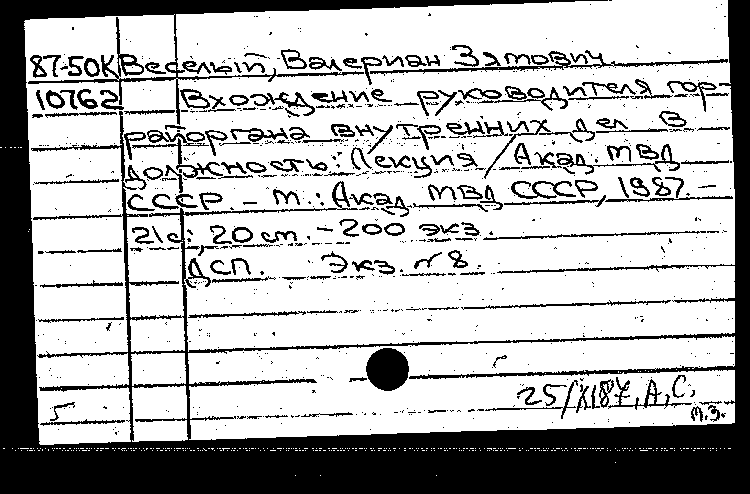 87-50К Веселый, Валериан Зятович.
10762 Вхождение руководителя гор-
райоргана внутренних дел в
должность: Лекция / Акад. МВД
СССР. - М.: Акад. МВД СССР, 1987. -
21с.; 20 см. - 200 экз.
ДСП. Экз. №8.
25/XI87, А, С,
М.З.
5